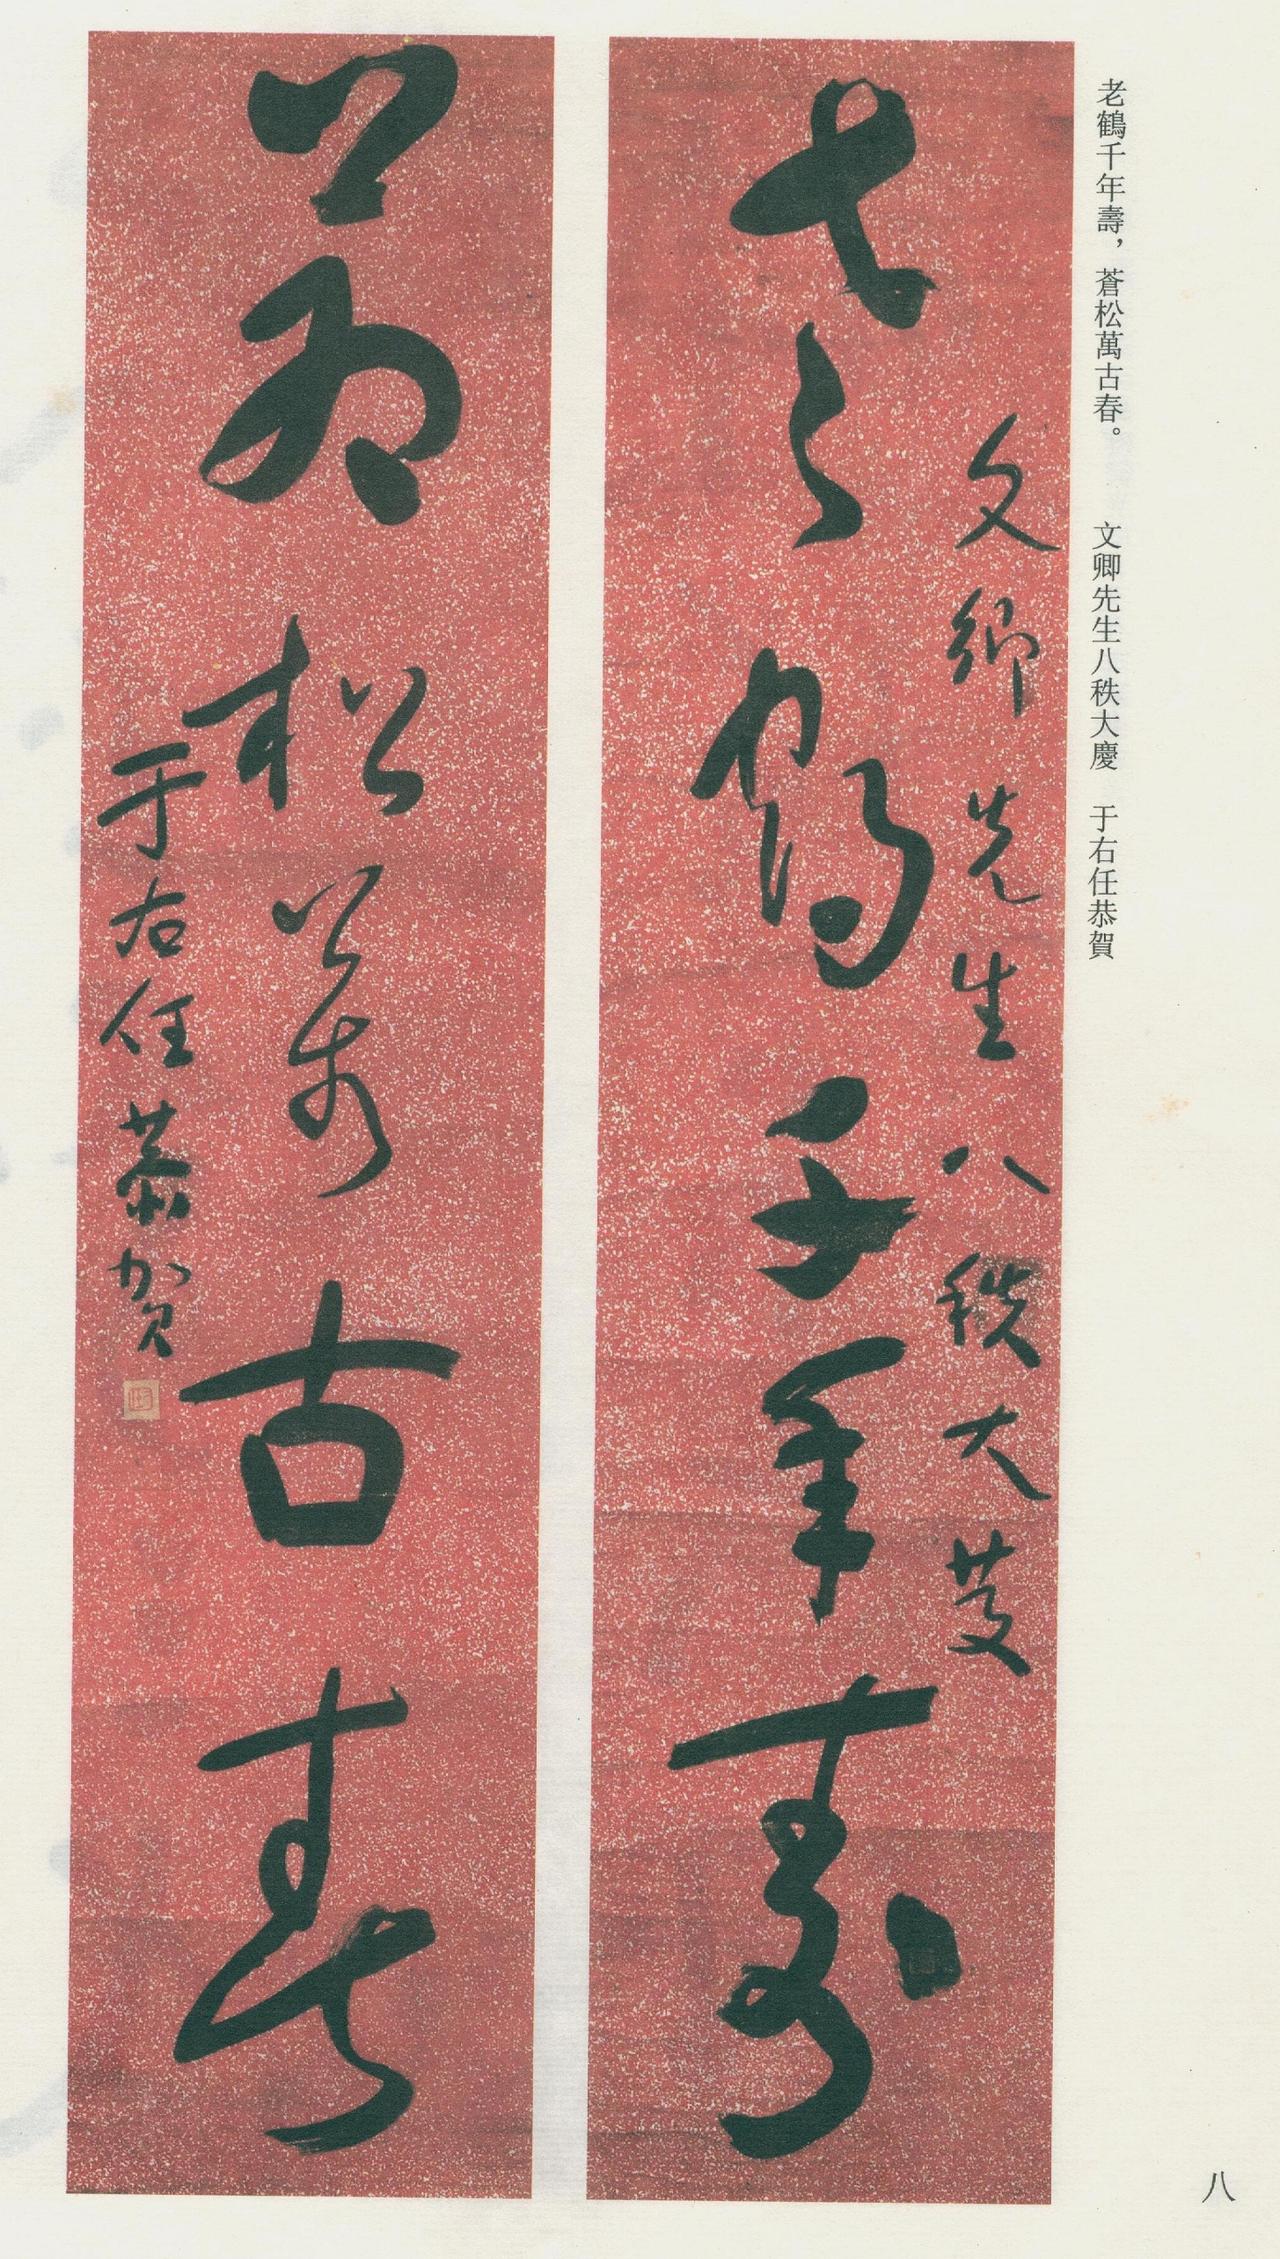 老鶴千年壽，蒼松萬古春。　文卿先生八秩大慶　于右任恭賀
文卿先生八秩大慶
老鶴千年壽
蒼松萬古春
于右任恭賀
八